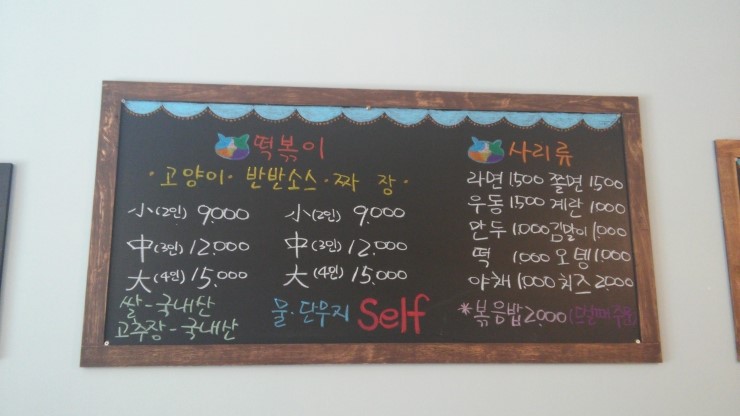 떡볶이
·고양이· 반반소스·짜 장·
小(2인) 9,000 小(2인) 9,000
中(3인) 12,000 中(3인) 12,000
大(4인) 15,000 大(4인) 15,000
쌀-국내산
고추장-국내산
물·단무지 Self
사리류
라면 1,500 쫄면 1500
우동 1500 계란 1000
만두 1,000 김말이 1,000
떡 1000 오뎅 1000
야채 1,000 치즈 2000
*볶음밥 2,000